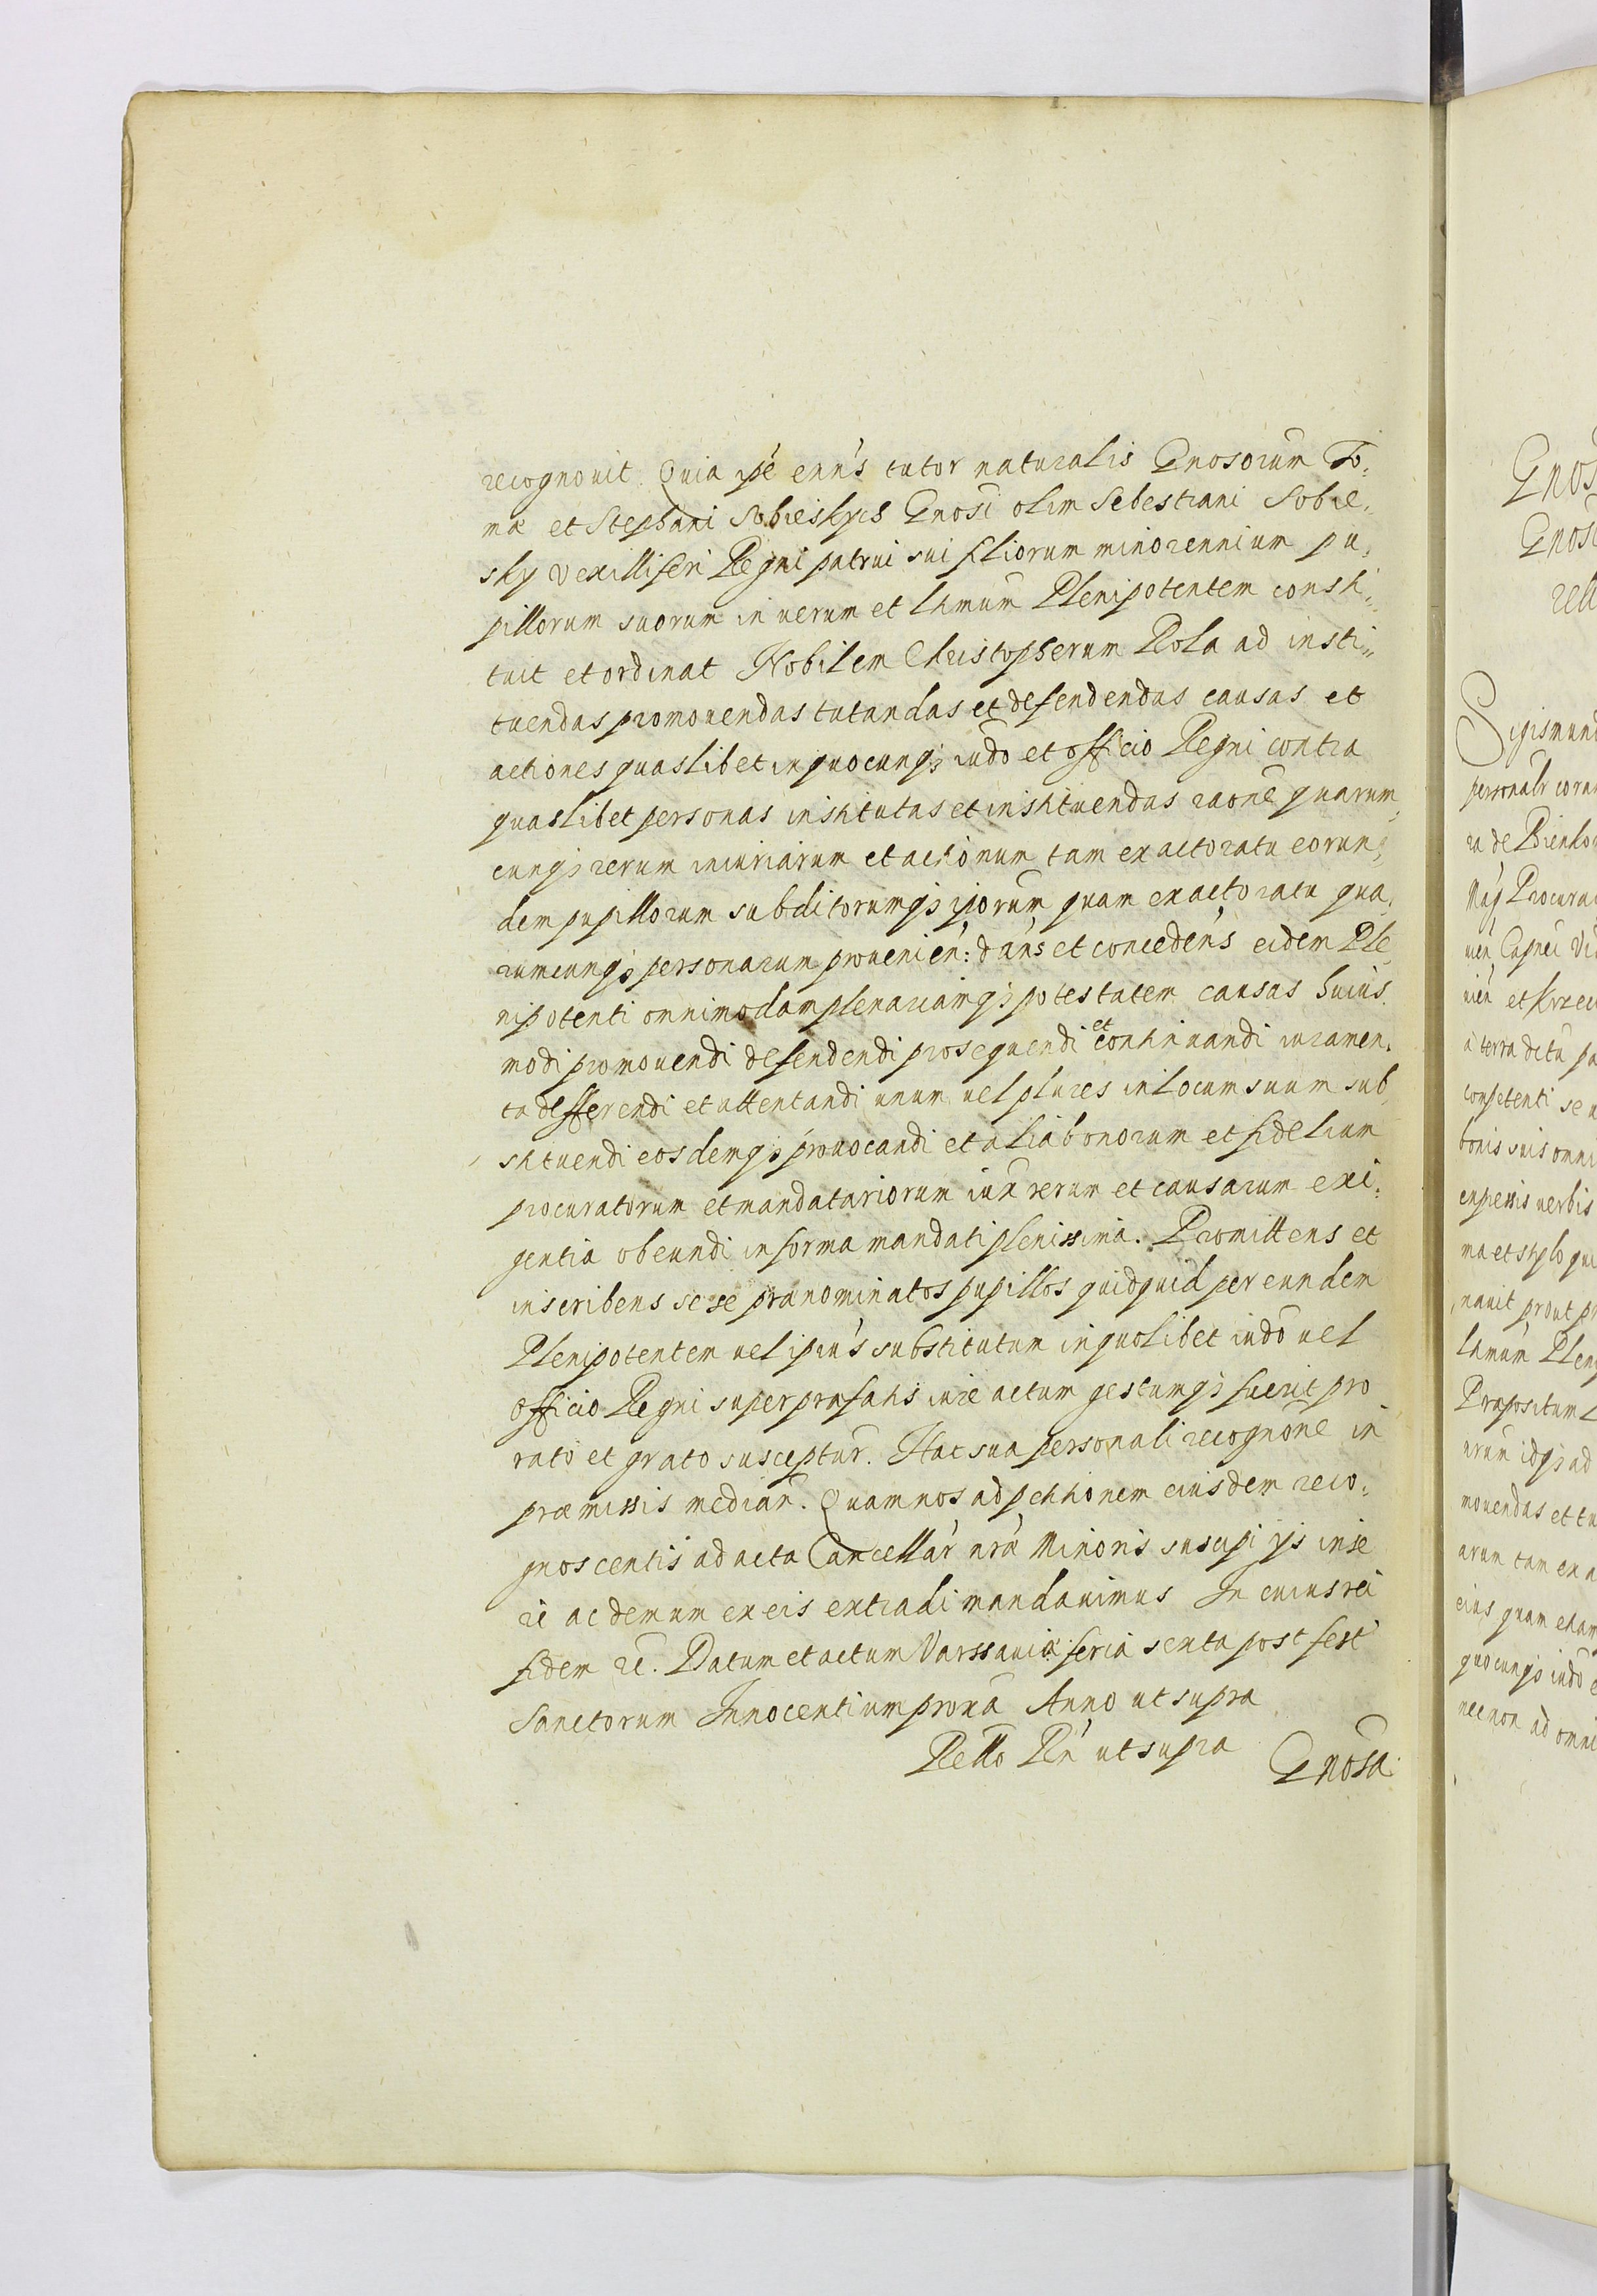 recognouit. Quia ipē enn̄s tutor naturalis Gnosorum To:
mæ et Stephani Sobieskych Gnosi olim Sebestiani Sobie:
sky Vexilliferi Regni patrui sui filiorum minorennium pu:
pillorum suorum in uerum et ltmum Plenipotentem consti:
tuit et ordinat Nobilem Christopherum Rola ad insti:
tuendas promouendas tutandas et defendendas causas et
actiones quaslibet in quocunq; iudo et officio Regni contra
quaslibet personas institutas et instituendas raone quarum
cunq; rerum iniuriarum et actionum tam ex actoratu eorun:
dem pupillorum subditorumq; iporum quam ex actoratu qua:
rumcunq; personarum prouenien: dans et concedens eidem Ple
nipotenti omnimodam plenariamq; potestatem causas huius
modi promouendi defendendi prosequendi et continuandi iuramen:
ta defferendi et attentandi unum uel plures in locum suum sub
stituendi eosdemq; prouocandi et alia bonorum et fidelium
procuratorum et mandatariorum iux rerum et causarum exi:
gentia obeundi in forma mandati plenissima. Promittens et
inscribens se se prænominatos pupillos quidquid per eundem
Plenipotentem uel ipius substitutum in quolibet iudo uel
officio Regni super præfatis iure actum gestumq; fuerit pro
rato et grato susceptur. Hac sua personali recognone in
præmissis median. Quam nos ad petitionem eiusdem reco:
gnoscentis ad acta Cancellar nra Minoris suscipi ijs inse
ri ac demum ex eis extradi mandauimus In cuius rei
fidem rc. Datum et actum Varssauiæ feria sexta post fest
Sanctorum Innocentium proxa Anno ut supra
Rello Rn ut supra
Gnosa
Gnos
Gnosi
rell
Sigismund
personalr coram
ra de Bienko
Mag Procura
uien et Krzeci
a terra dcta pa
conpetenti se u
bonis suis omni
expressis uerbis
ma et stylo qui
nauit prout pr
ltmum Plenip
Præpositum L
arum idq; ad
mouendas et tu
arum tam ex a
eius quam etiam
quocunq; iudo e
nec non ad omni